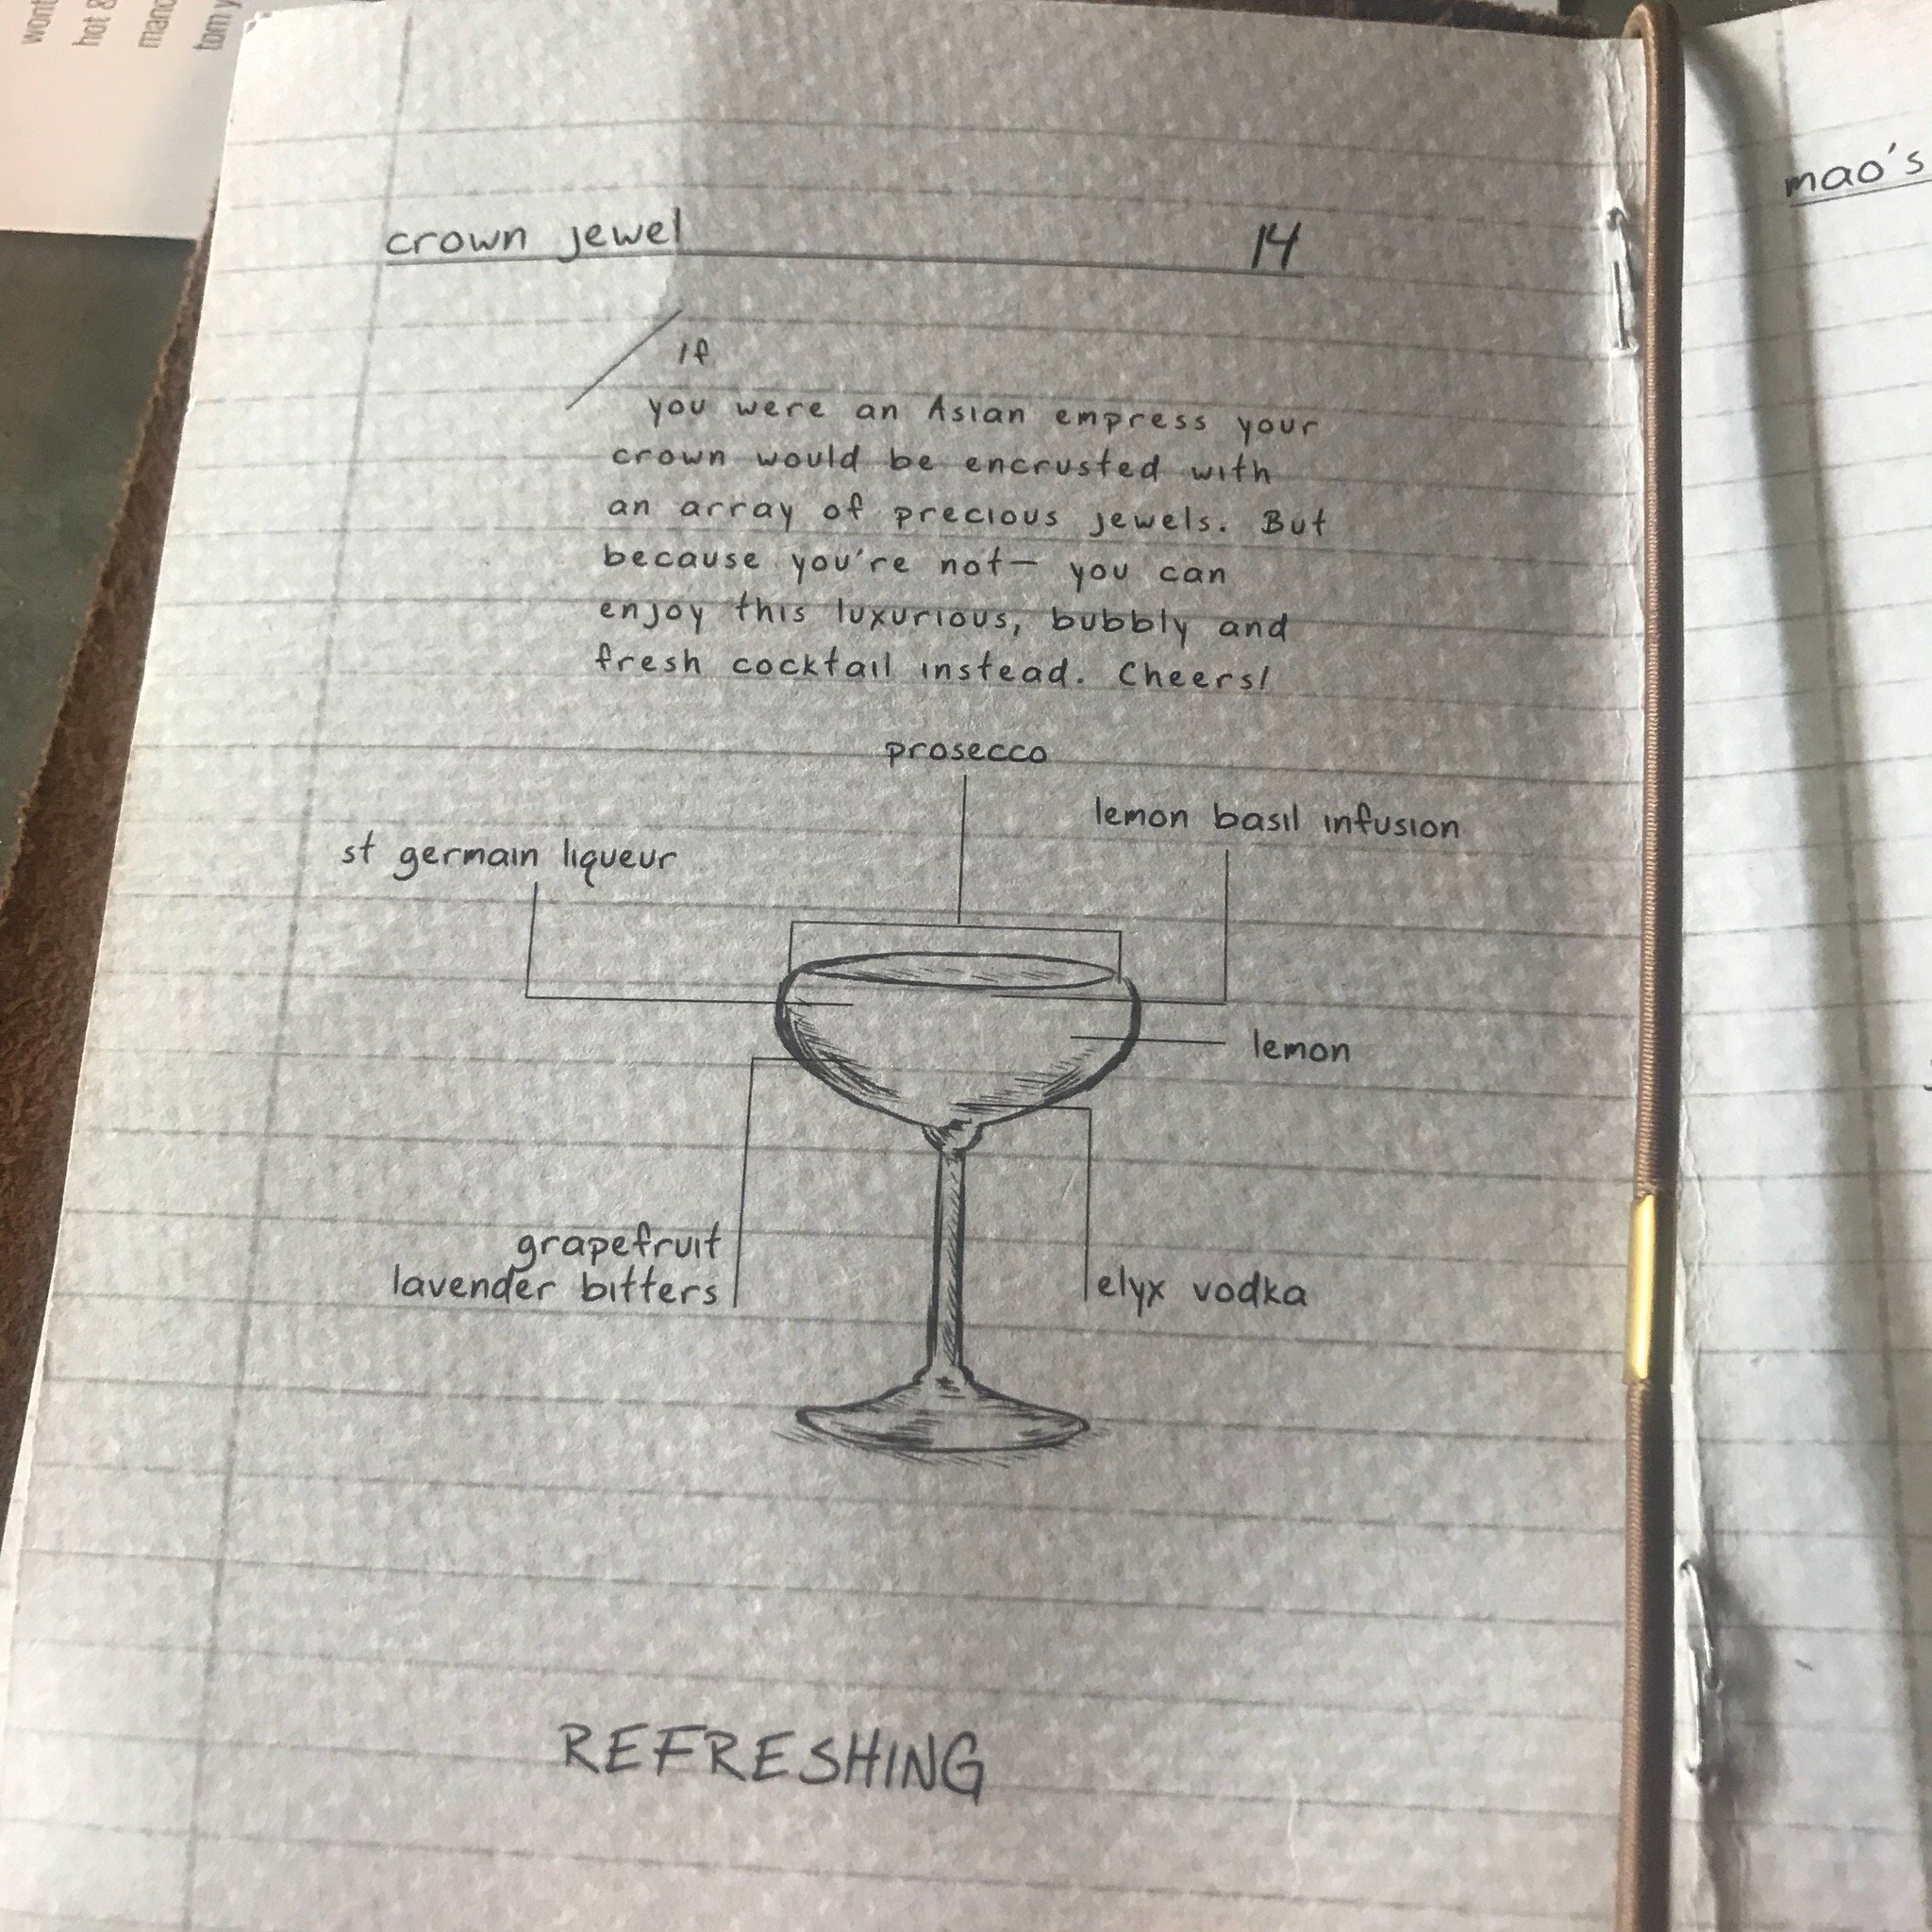 crown jewel 14
If
you were an Asian empress your
crown would be encrusted with
an array of precious jewels. But
because you're not— you can
enjoy this luxurious, bubbly and
fresh cocktail instead. Cheers!
prosecco
lemon basil infusion
st germain liqueur
lemon
grapefruit
lavender bitters
elyx vodka
REFRESHING
mao's
hot &
tom y